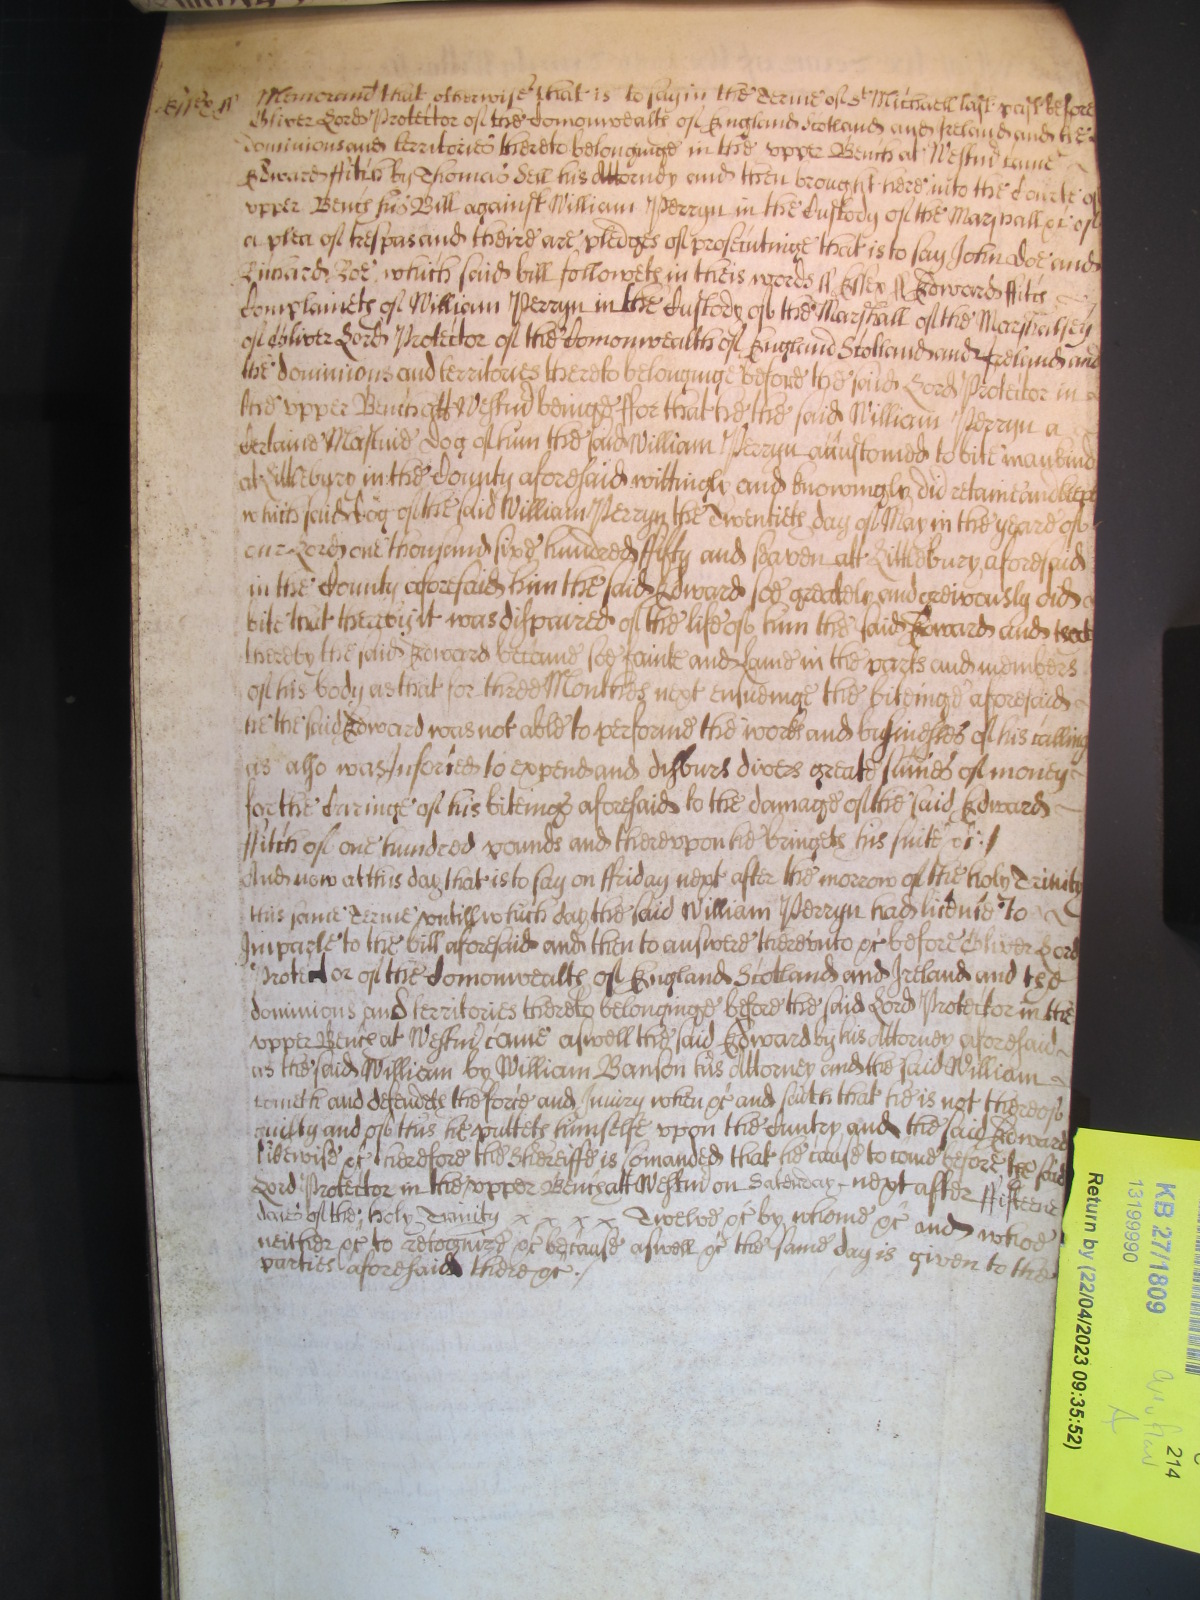 Essex ss Memorand that otherwise that is to say in the Terme of St Michaell last past before
Oliver Lord Protector of the Comonwealth of England Scotland and Ireland and the
dominions and territories thereto belonginge in the upper Bench at Westm came
Edward ffitch by Thomas Sell his Attorney and then brought here into the Courte of
upper Bench his Bill against William Perryn in the Custody of the Marshall &c of
a plea of trespas and theire are pledges of prosecutinge that is to say John Doe and
Richard Roe which said bill followeth in theis words ss Essex ss Edward ffitch
Complaineth of William Perryn in the Custody of the Marshall of the Marshalsey
of Oliver Lord Protector of the Comonwealth of England Scotland and Ireland and
the dominions and territories thereto belonginge before the said Lord Protector in
the upper Bench att Westm beinge ffor that he the said William Perryn a
Certaine Mastive Dog of him the said William Perryn accustomed to bite mankind
at Littlebury in the County aforesaid wittingly and knowingly did retaine and keepe
which said Dog of the said William Perryn the Twentieth day of May in the yeare of
our Lord one thousand sixe hundred ffifty and seaven att Littlebury aforesaid
in the County aforesaid him the said Edward soe greately and greivously did
bite that thereby it was dispaired of the life of him the said Edward and
thereby the said Edward became soe fainte and Lame in the parts and members
of his body as that for three Monthes next ensueinge the biteinge aforesaid
he the said Edward was not able to performe the works and businesses of his calling
as also was Inforced to expend and disburs divers greate sumes of money
for the Curinge of his biteinge aforesaid to the damage of the said Edward
ffitch of one hundred pounds and thereupon he bringeth his suite &c
And now at this day that is to say on ffriday next after the morrow of the holy Trinity
this same Terme untill which day the said William Perryn had licence to
Imparle to the bill aforesaid and then to answere thereunto &c before Oliver Lord
Protector of the Comonwealth of England Scotland and Ireland and the
dominions and territories thereto belonginge before the said Lord Protector in the
upper Bench at Westm came aswell the said Edward by his Attorney aforesaid
as the said William by William Banson his Attorney and the said William
cometh and defendeth the force and Iniury when &c and saith that he is not thereof
guilty and of this he putteth himselfe upon the Cuntry and the said Edward
likewise &c therefore the Shereiffe is Comanded that he cause to come before the said
Lord Protector in the upper Bench att Westm on Saterday next after ffifteene
daies of the holy Trinity x x x x Twelve &c by whome &c and whoe
neither &c to recognize &c because aswell &c the same day is given to the
parties aforesaid there &c
KB 27/1809
13199990
Return by (22/04/2023 09:35:52)
214